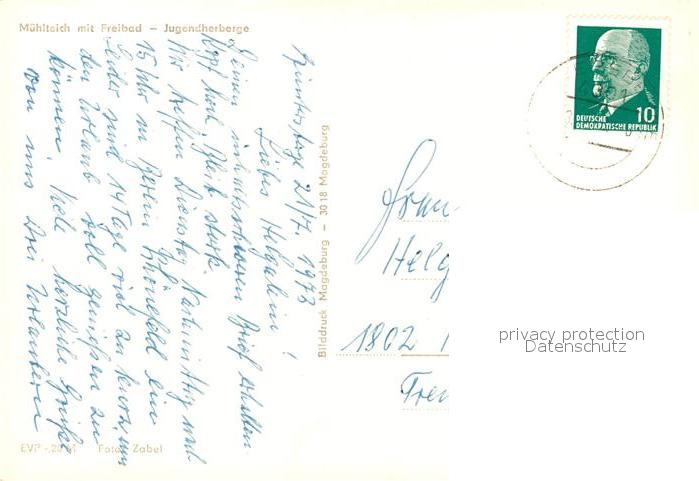 Mühlteich mit Freibad – Jugendherberge
Güntersberge 21/7. 1978
Liebes Helgalein!
Deinen inhaltsschweren Brief erhalten.
Kopf hoch, bleib stark.
Wir treffen Dienstag Nachmittag
15 Uhr in Berlin Schönefeld ein
Leider sind 14 Tage viel zu kurz, um
den Urlaub voll genießen zu
können. Viele herzliche Grüße
von uns drei Urlaubern
EVP -,20 M Foto: Zabel
Bilddruck Magdeburg – 3018 Magdeburg
DEUTSCHE
DEMOKRATISCHE REPUBLIK
10
Frau
Helg
1802
privacy protection
Datenschutz